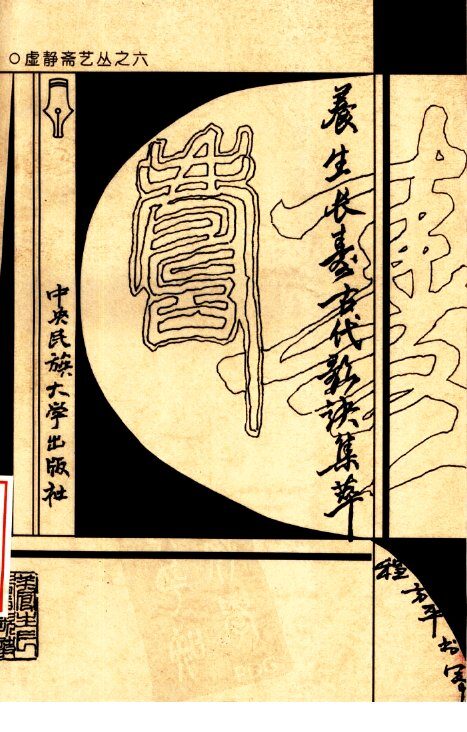 虚静斋艺丛之六
養生长寿古代歌诀集萃
寿
中央民族大学出版社
程方平书写